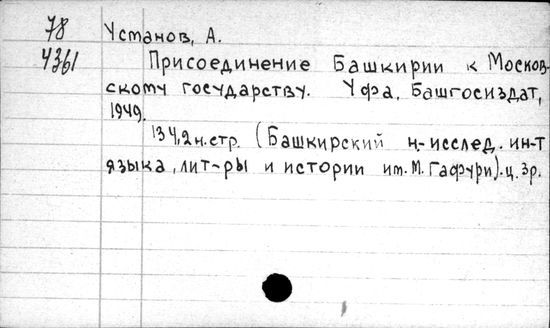 78 Усманов, А.
4361 Присоединение Башкирии к Москов-
скому государству. Уфа, Башгосиздат,
1949.
134,2н.стр. (Башкирский н-исслед. ин-т
языка, лит-ры и истории им. М. Гафури). ц. 3р.